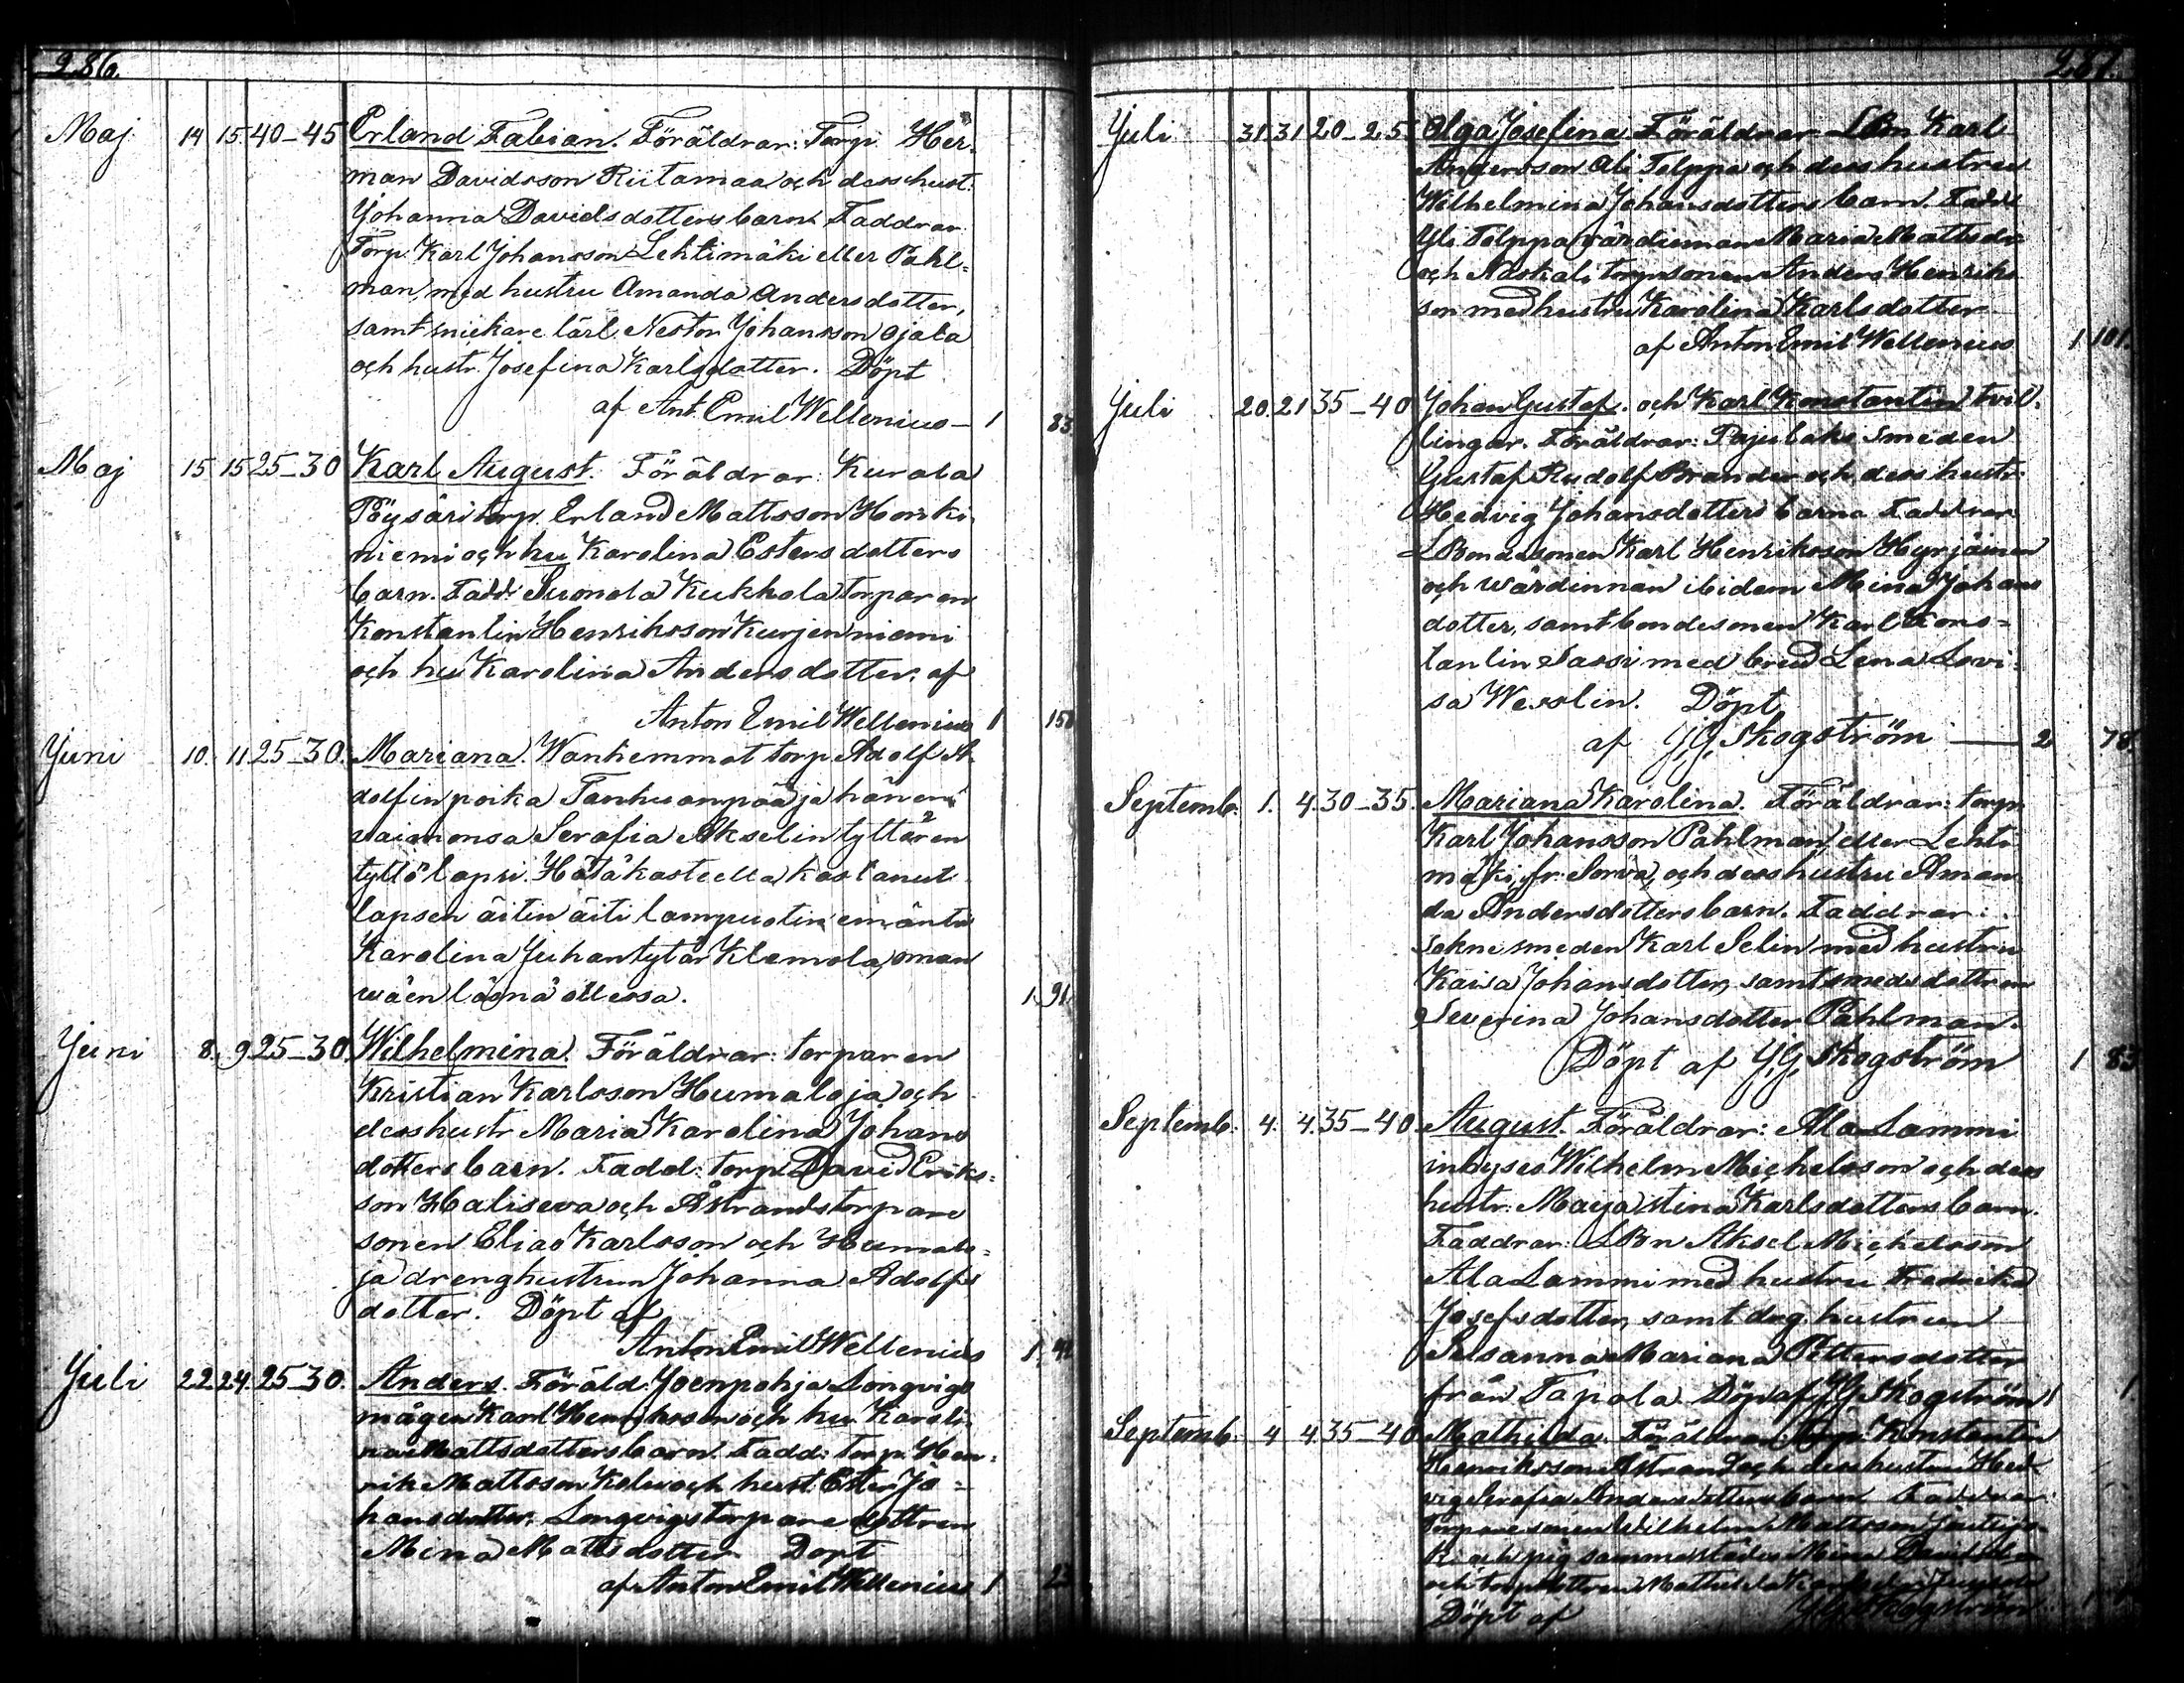 286.
Maj 14 15 40–45 Erland Fabian. Föräldrar: Torp. Her-
man Davidsson Riitamaa och dess hust.
Johanna Davidsdotters barn. Faddrar
Torp. Karl Johansson Lehtimäki eller Pahl=
man, med hustru Amanda Andersdotter,
samt snickare lärl. Nestor Johansson Ojala
och hustr. Josefina Karlsdotter. Döpt
af Ant. Emil Wellenius – 1 83
Maj 15 15 25–30 Karl August. Föräldrar: Kurala
Pöysäri torp. Erland Mattsson Honki-
niemi och hu Karolina Estersdotters
barn. Fadd: Suomola Kukkola torparen
Konstantin Henriksson Kurjenniemi
och hu Karolina Andersdotter. af
Anton Emil Wellenius 1
Juni 10. 11 25–30. Mariana. Wanhemmat torp. Adolf A-
dolfin poika Tanhuanpää ja hänen
vaimonsa Serafia Akselin tyttären
tyttö lapsi. Hätäkasteella kastanut
lapsen äitin äiti lampuotin emäntä
Karolina Juhantytär Klemola, oman
wäen läsnä ollessa. 1. 91.
Juni 8. 9 25–30. Wilhelmina. Föräldrar: torparen
Kristian Karlsson Humaloja och
dess hustr Maria Karolina Johans
dotters barn. Fadd: torp. David Eriks=
son Haliseva och Åstrandstorpare
sonen Elias Karlsson och Humalo=
ja drenghustrun Johanna Adolfs
dotter. Döpt af
Anton Emil Wellenius 1
Juli 22 24 25–30. Anders. Föräld. Joenpohja Longvigs
mågen Karl Henriksson och hu Karoli-
na Mattsdotters barn. Fadd: torp. Hen-
rik Mattsson och hust. Ester Jo=
hansdotter, Longvigs torpare dottren
Mina Mattsdotter Döpt
af Anton Emil Wellenius 1 23
287.
Juli 31 31 20–25 Olga Josefina Föräldrar LBn Karl
Andersson Ali Tolppa och dess hustru
Wilhelmina Johansdotters barn. Fadd
Yli Tolppa värdinnan Maria Mattsdr
och torparsonen Anders Henriks
son med hustru Karolina Karlsdotter
af Anton Emil Wellenius 1 101.
Juli 20. 21 35–40 Johan Gustaf. och Karl Konstantin tvil-
lingar. Föräldrar: Pajulaks smeden
Gustaf Rudolf Brander och dess hustr.
Hedvig Johansdotters barna Faddrar
LBondesonen Karl Henriksson Hyrjäinen
och wärdinnan ibidem Mina Johans
dotter, samt bondesonen Karl Kons=
tantin Sassi med brud Lena Lovi-
sa Weslin. Döpt
af J.G. Skogström — 2 78.
Septemb. 1. 4. 30–35. Mariana Karolina. Föräldrar: torp.
Karl Johansson Pahlman, eller Lehti
mäki, fr. Sorva, och dess hustru Aman
da Andersdotters barn. Faddrar:
sokne smeden Karl Selin med hustru
Kaisa Johansdotter, samt smedsdottren
Severina Johansdotter Pahlman.
Döpt af J.G. Skogström 1 83
Septemb. 4. 4. 35–40. August. Föräldrar: Ala Lammi
inhyses Wilhelm Michelsson och dess
hustr. Maija Stina Karlsdotters barn.
Faddrar: LBn Aksel Michelsson
Ala Lammi med hustru Fredrika
Josefsdotter, samt dag. hustrun
Susanna Mariana Pettersdotter
från Tapola. Döpt af J.G. Skogström 1
Septemb. 4 4. 35–40 Mathilda. Föräldrar Torp. Konstantin
Henriksson Åstrand och dess hustru Hed
vig Serafia Andersdotters barn Faddrar:
Torpare sonen Wilhelm Mattsson
och pig. sammastädes Mina
och torp. dottren Mathilda
Döpt af J.G. Skogström